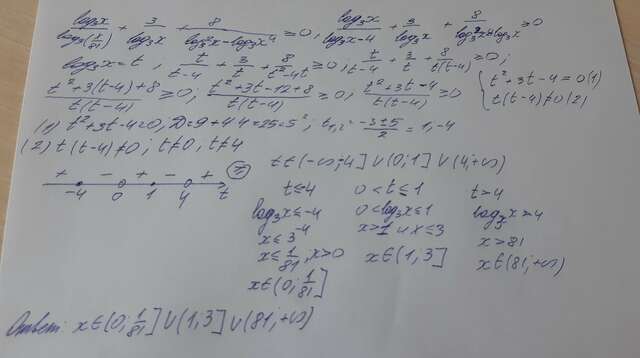 log₃x / log₃(x/81) + 3/log₃x + 8/(log₃²x - log₃x⁴) ≥ 0, log₃x/(log₃x-4) + 3/log₃x + 8/(log₃²x-4log₃x) ≥ 0
log₃x = t, t/(t-4) + 3/t + 8/(t²-4t) ≥ 0; t/(t-4) + 3/t + 8/(t(t-4)) ≥ 0;
(t²+3(t-4)+8)/(t(t-4)) ≥ 0; (t²+3t-12+8)/(t(t-4)) ≥ 0, (t²+3t-4)/(t(t-4)) ≥ 0 { t²+3t-4=0 (1)
t(t-4)≠0 (2)
(1) t²+3t-4=0, D=9+4·4=25=5², t₁,₂=(-3±5)/2=1,-4
(2) t(t-4)≠0; t≠0, t≠4
+ - + - + t∈(-∞;-4]∪(0;1]∪(4,+∞)
-4 0 1 4 t
t≤-4 0<t≤1 t>4
log₃x≤-4 0<log₃x≤1 log₃x>4
x≤3⁻⁴ x>1 и x≤3 x>81
x≤1/81, x>0 x∈(1,3] x∈(81,+∞)
x∈(0;1/81]
Ответ: x∈(0;1/81]∪(1,3]∪(81,+∞)